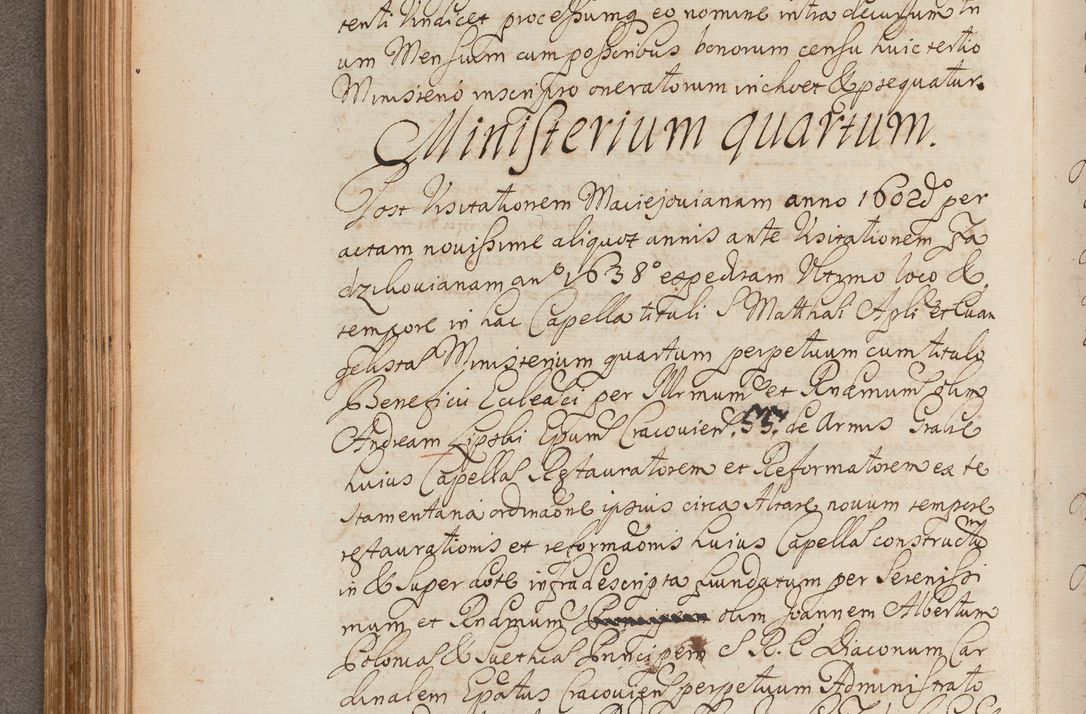 renti Vindicet processumq eo nomine intra decursum tri
um Mensium cum possoribus bonorum censu huic tertio
Ministerio inscripto oneratorum inchoet & psequatur.
Ministerium quartum.
Post Visitationem Maciejovianam anno 1602do per
actam novissime aliquot annis ante Visitationem Za
dzikovianam ano 1638o expeditam Ultimo loco &
tempore in hac Capella tituli S Matthæi Apli et Evan
gelistæ Ministerium quartum perpetuum cum titulo
Beneficii Ecclesiaci per Illrmum et Rndmum olim
Andream Lipski Epum Cracovien. 55. de Armis Grabie
huius Capellæ Restauratorem et Reformatorem ex te
stamentaria ordinaone ipsius circa Altare novum tempore
restaurationis et reformaonis huius Capellæ constructum
in & super dote infradescripta fundatum per Serenissi
mum et Rndmum olim Joannem Albertum
Poloniæ & Suethiæ Principem S R E Diaconum Car
dinalem Epatus Cracovien perpetuum Administrato